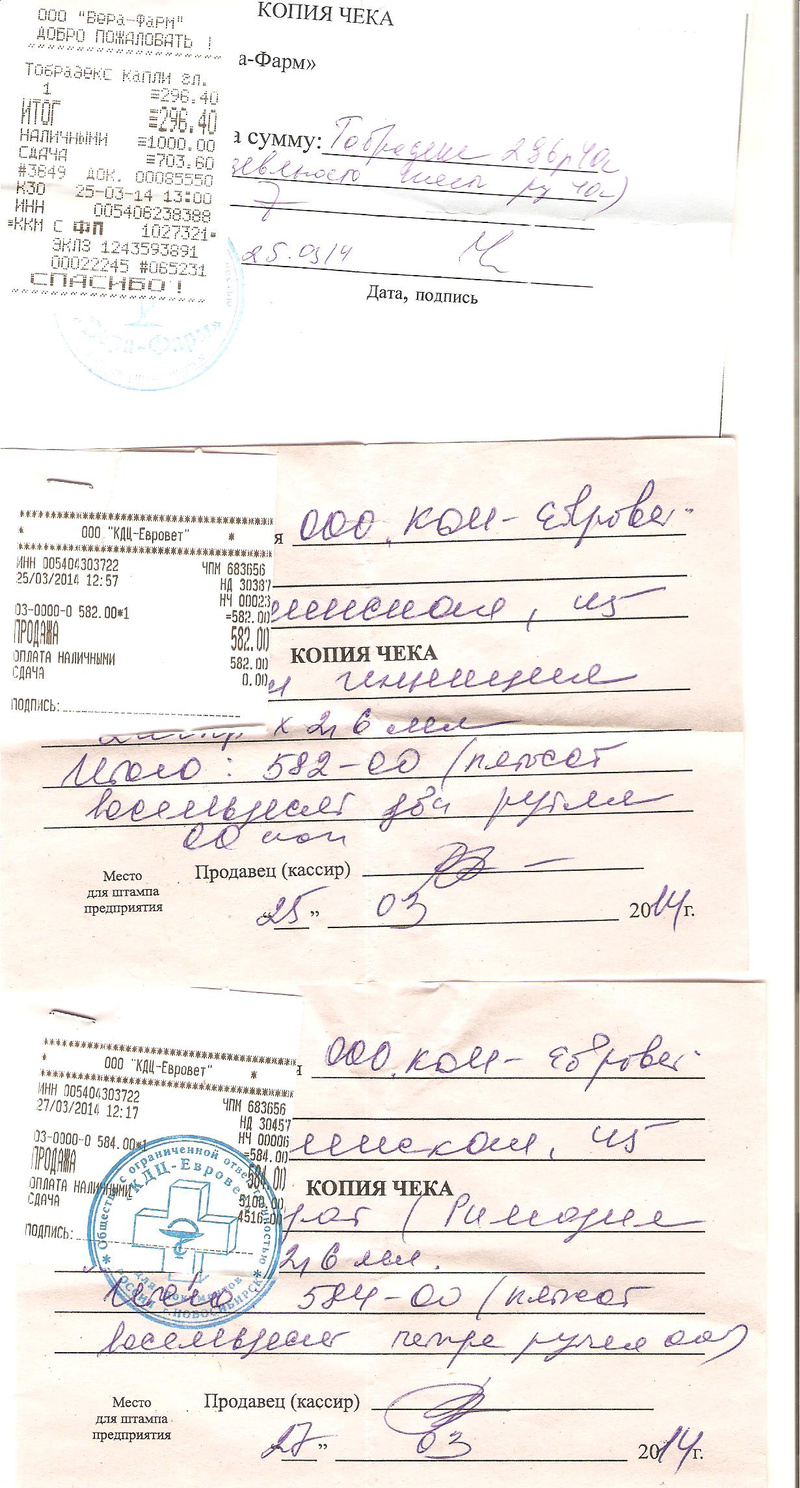 ООО "Вера-Фарм"
ДОБРО ПОЖАЛОВАТЬ !
Тобрадекс капли гл.
1 =296.40
ИТОГ =296.40
НАЛИЧНЫМИ =1000.00
СДАЧА =703.60
#3649 ДОК. 00085550
К30 25-03-14 13:00
ИНН 005406238388
*ККМ С ФП 1027321*
ЭКЛЗ 1243593891
00022245 #065231
СПАСИБО!
КОПИЯ ЧЕКА
а-Фарм»
а сумму: Тобрадекс 296р40к
25.03.14
Дата, подпись
«Вера-Фарм»
ООО "КДЦ-Евровет" *
ИНН 005404303722 ЧПМ 683656
25/03/2014 12:57 НД 30387
НЧ 00023
03-0000-0 582.00*1 =582.00
ПРОДАЖА 582.00
ОПЛАТА НАЛИЧНЫМИ 582.00
СДАЧА 0.00
ПОДПИСЬ:
я ООО "КДЦ-Евровет"
45
КОПИЯ ЧЕКА
х 2,6 мл
Итого: 582-00 (пятьсот
восемьдесят два рубля
00 коп
Место
для штампа
предприятия
Продавец (кассир)
"25" 03 2014г.
* ООО "КДЦ-Евровет" *
ИНН 005404303722 ЧПМ 683656
27/03/2014 12:17 НД 30457
НЧ 00006
03-0000-0 584.00*1 =584.00
ПРОДАЖА 584.00
ОПЛАТА НАЛИЧНЫМИ 5100.00
СДАЧА 4516.00
ПОДПИСЬ:
Общество с ограниченной ответственностью
КДЦ-Евровет
Для документов
РОССИЯ НОВОСИБИРСК
я ООО "КДЦ-Евровет"
45
КОПИЯ ЧЕКА
(Римадил
2,6 мл.
Итого 584-00 (пятьсот
восемьдесят четыре рубля 00)
Место
для штампа
предприятия
Продавец (кассир)
27" 03 2014г.